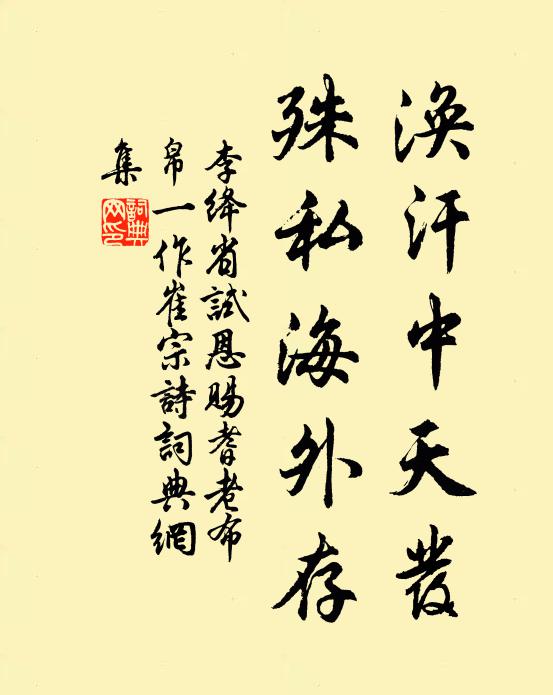 渙汗中天發
殊私海外存
李絳省試恩賜耆老布
帛一作崔宗詩詞典網
集
詞典網印